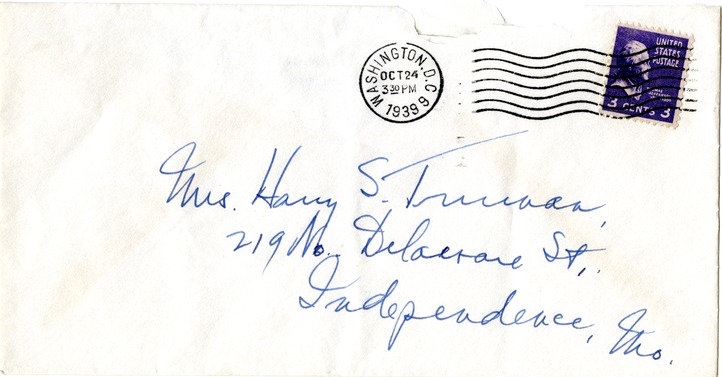 WASHINGTON, D.C.
OCT 24
3 30 PM
1939
9
UNITED
STATES
POSTAGE
3 CENTS 3
Mrs. Harry S. Truman,
219 No. Delaware St.,
Independence, Mo.